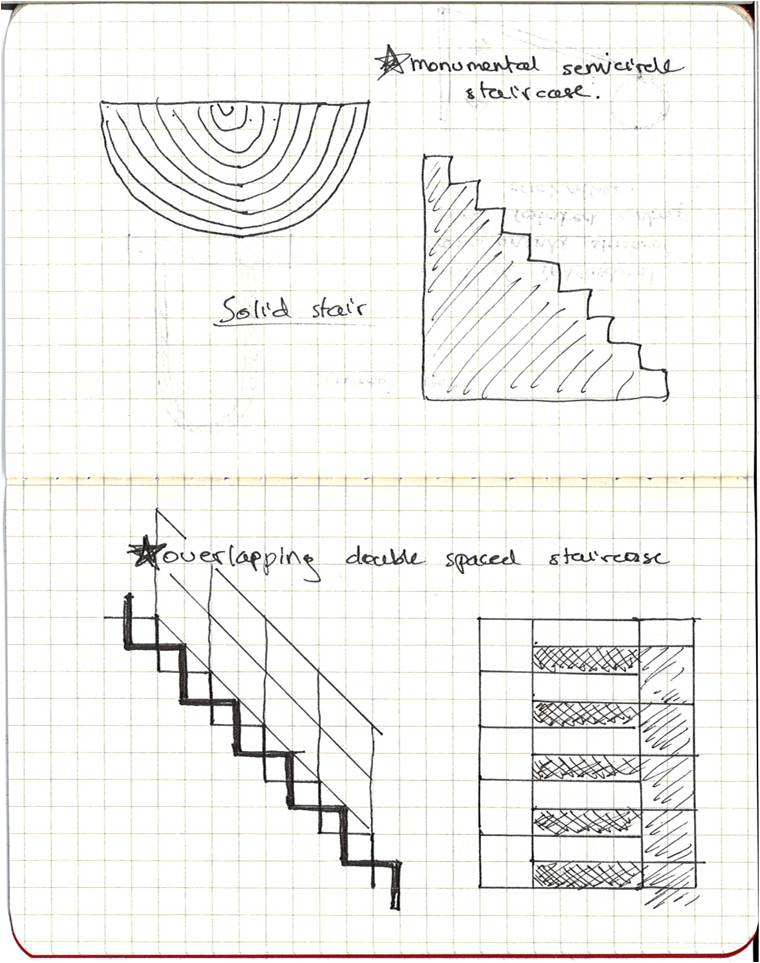 monumental semicircle
staircase.
Solid stair
overlapping double spaced staircase